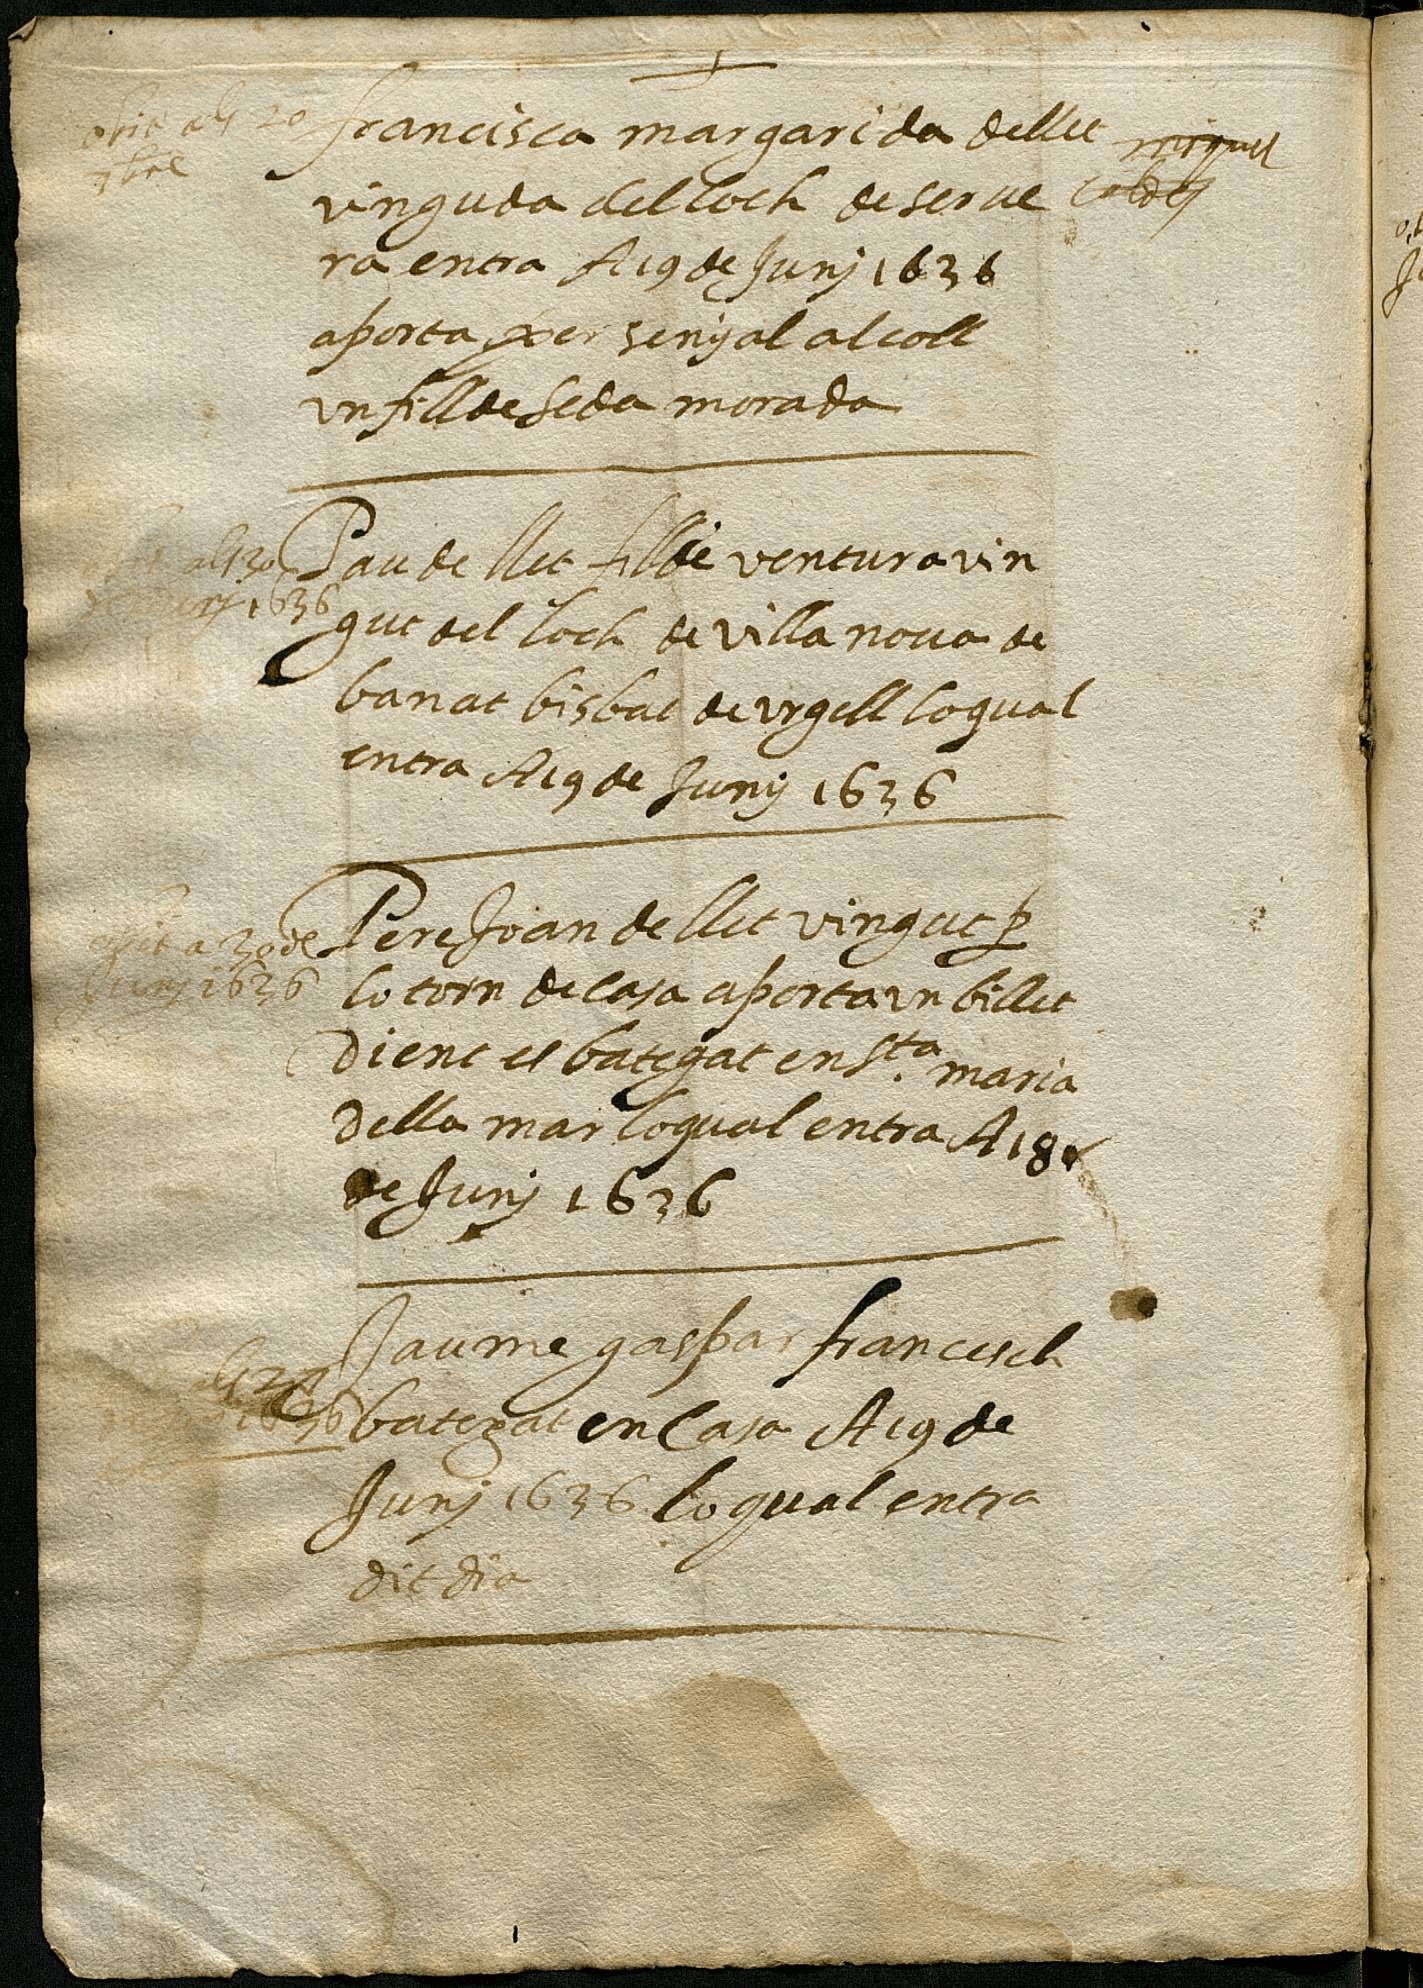 obit als 20
7bre
francisca margarida de llet
vinguda del loch de serue
ra entra A 19 de Junj 1636
aporta per senyal al coll
vn fill de seda morada
miquel
als 30
Junj 1636
Pau de llet fill de ventura vin
gut del loch de villa noua de
banat bisbat de vrgell loqual
entra A 19 de Juny 1636
obit a 30 de
Junj 1636
Pere Joan de llet vingut p
lo torn de Casa aporta vn billet
dient es bategat en Sta maria
della mar loqual entra A 18
de Junj 1636
als 27
1636
Jaume gaspar francesch
bategat en Casa A 19 de
Junj 1636 loqual entra
dit dia